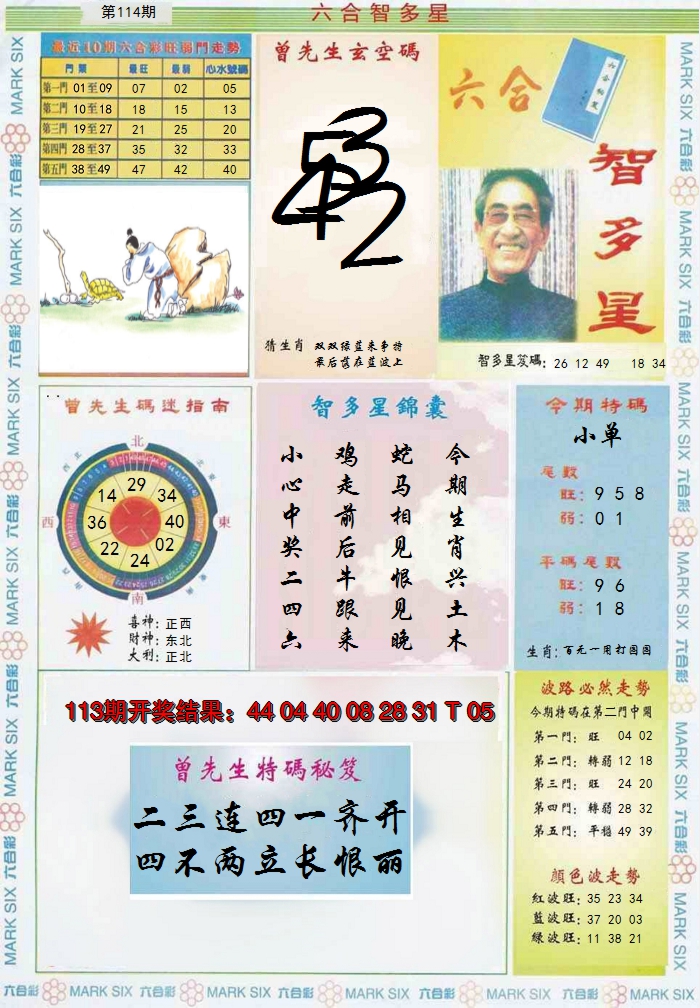 第114期
六合智多星
最近10期六合彩旺弱門走勢
門票 最旺 最弱 心水號碼
第一門 01至09 07 02 05
第二門 10至18 18 15 13
第三門 19至27 21 25 20
第四門 28至37 35 32 33
第五門 38至49 47 42 40
曾先生玄空碼
猜生肖 双双绿蓝来争特
最后落在蓝波上
六合
六合秘笈
智多星
智多星笈碼: 26 12 49 18 34
曾先生碼迷指南
北
西北
東北
西
東
西南
東南
南
29
14
34
36
40
22
02
24
喜神: 正西
財神: 东北
大利: 正北
智多星錦囊
今期生肖兴土木
蛇马相见恨见晚
鸡走前后牛跟来
小心中奖二四六
今期特碼
小单
尾數
旺: 9 5 8
弱: 0 1
平碼尾數
旺: 9 6
弱: 1 8
生肖: 百元一用打园园
113期开奖结果: 44 04 40 08 28 31 T 05
曾先生特碼秘笈
二三连四一齐开
四不两立长恨丽
波路必然走勢
今期特碼在第二門中開
第一門: 旺 04 02
第二門: 轉弱 12 18
第三門: 旺 24 20
第四門: 轉弱 28 32
第五門: 平穩 49 39
顏色波走勢
紅波旺: 35 23 34
藍波旺: 37 20 03
绿波旺: 11 38 21
六合彩 MARK SIX 六合彩 MARK SIX 六合彩 MARK SIX 六合彩 MARK SIX 六合彩 MARK SIX